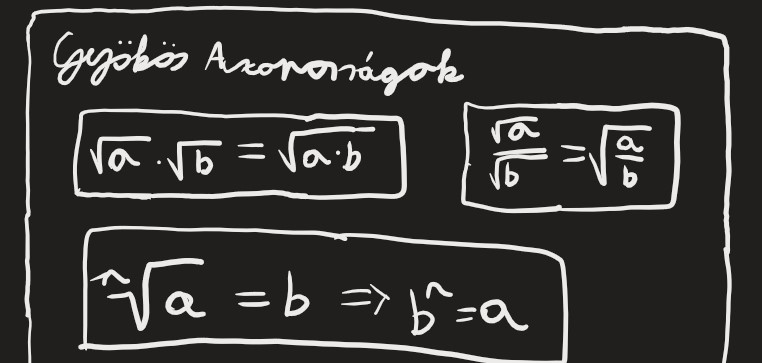 Gyökös Azonosságok
√a · √b = √(a·b)
√a/√b = √(a/b)
ⁿ√a = b ⇒ bⁿ = a